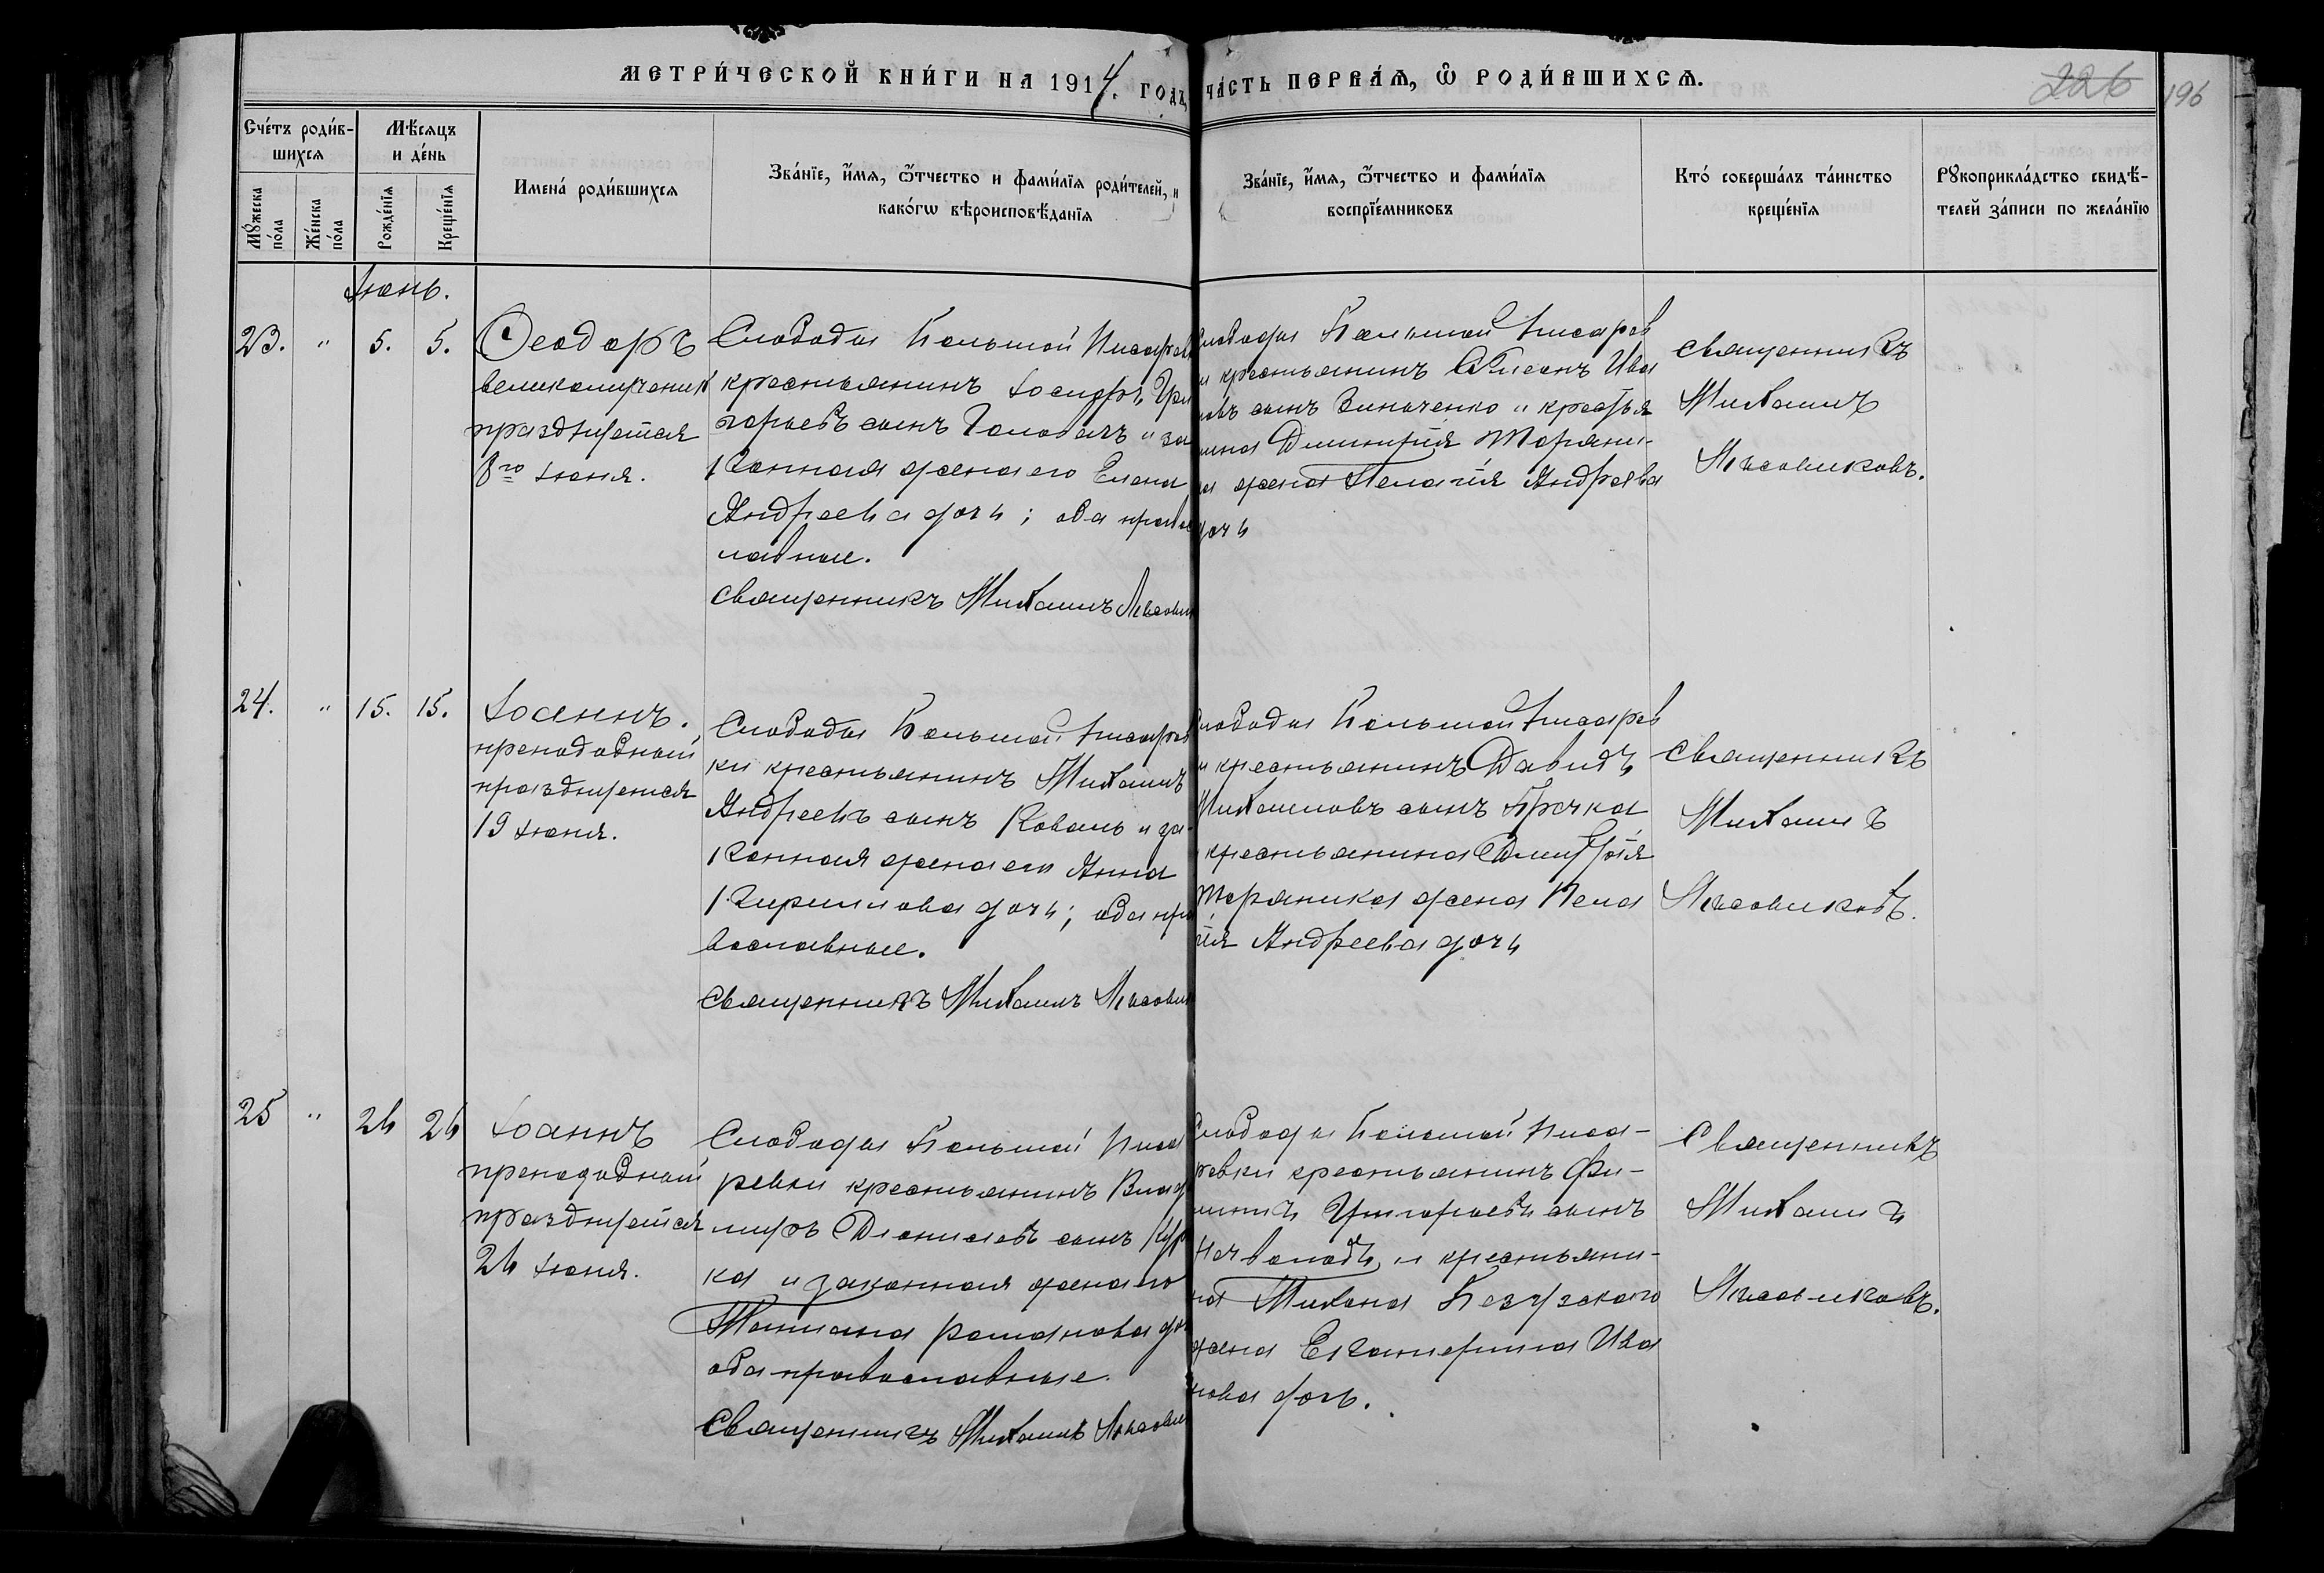 МЕТРИ́ЧЕСКОЙ КНИ́ГИ НА 1914. ГОДЪ, ЧА́СТЬ ПЕРВА́Ѧ, Ѽ РОДИ́ВШИХСѦ.
226 196
Сче́тъ роди́в-
шихсѧ
Мꙋ́жеска по́ла
Же́нска по́ла
Мѣ́сѧцъ
и де́нь
Рожде́нїѧ
Креще́нїѧ
Имена́ роди́вшихсѧ
Зва́нїе, и҆́мѧ, ѻ҆́тчество и фами́лїѧ роди́телей, и
како́гѡ вѣроисповѣ́данїѧ
Зва́нїе, и҆́мѧ, ѻ҆́тчество и фами́лїѧ
воспрїе́мниковъ
Кто́ соверша́лъ та́инство
креще́нїѧ
Рꙋкоприкла́дство свидѣ́-
телей за́писи по жела́нїю
Іюнь.
23. " 5. 5.
Ѳеодоръ
великомученик
празднуется
8го Іюня.
Слободы Большой Писарев
крестьянинъ Іосифъ Гри
горьевъ сынъ Головачъ и за
конная жена его Елена
Андреева дочь; оба правос
лавные.
Священникъ Михаилъ Лѣсовик
Слободы Большой Писарев
ки крестьянинъ Ива
новъ сынъ Зинченко и крестья
нина Димитрія
жена Пелагія Андреева
дочь
Священникъ
Михаилъ
Лѣсовиковъ.
24. " 15. 15.
Іоаннъ.
преподобный
празднуется
19 Іюня.
Слободы Большой Писарев
ки крестьянинъ Михаилъ
Андреевъ сынъ Коваль и за-
конная жена его Анна
Кириллова дочь; оба пра
вославные.
Священникъ Михаилъ Лѣсовик
Слободы Большой Писарев
ки крестьянинъ Давидъ
Михаиловъ сынъ
крестьянина Димитрія
жена Пела
гія Андреева дочь
Священникъ
Михаилъ
Лѣсовиковъ.
25 " 24 24
Іоаннъ
преподобный
празднуется
24 Іюня.
Слободы Большой Писа
ревки крестьянинъ Влади
миръ Діонисіевъ сынъ
ка и законная жена его
Татіана Романова дочь
оба православные.
Священникъ Михаилъ Лѣсовик
Слободы Большой Писа-
ревки крестьянинъ Фи-
липпъ Григорьевъ сынъ
и крестьяни-
на
жена Екатерина Ива
нова дочь.
Священникъ
Михаилъ
Лѣсовиковъ.